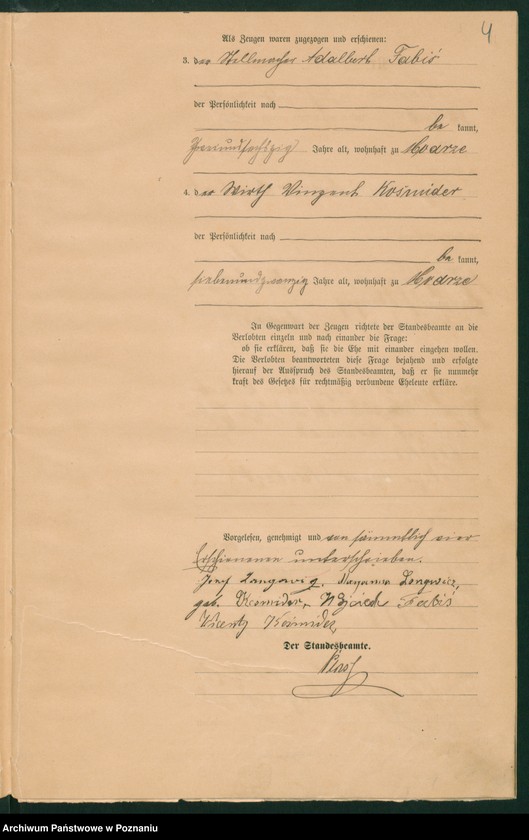 4
Als Zeugen waren zugezogen und erschienen:
3. der Stellmacher Adalbert Fabiś
der Persönlichkeit nach
be kannt,
Jahre alt, wohnhaft zu Modrze
4. der Wirth Vinzent Kośmider
der Persönlichkeit nach
be kannt,
siebenundzwanzig Jahre alt, wohnhaft zu Modrze
In Gegenwart der Zeugen richtete der Standesbeamte an die
Verlobten einzeln und nach einander die Frage:
ob sie erklären, daß sie die Ehe mit einander eingehen wollen.
Die Verlobten beantworteten diese Frage bejahend und erfolgte
hierauf der Ausspruch des Standesbeamten, daß er sie nunmehr
kraft des Gesetzes für rechtmäßig verbundene Eheleute erkläre.
Vorgelesen, genehmigt und von sämmtlich vier
Erschienenen unterschrieben.
Józef
geb. Kosmider, Wojciech Fabiś
Kośmider
Der Standesbeamte.
Archiwum Państwowe w Poznaniu